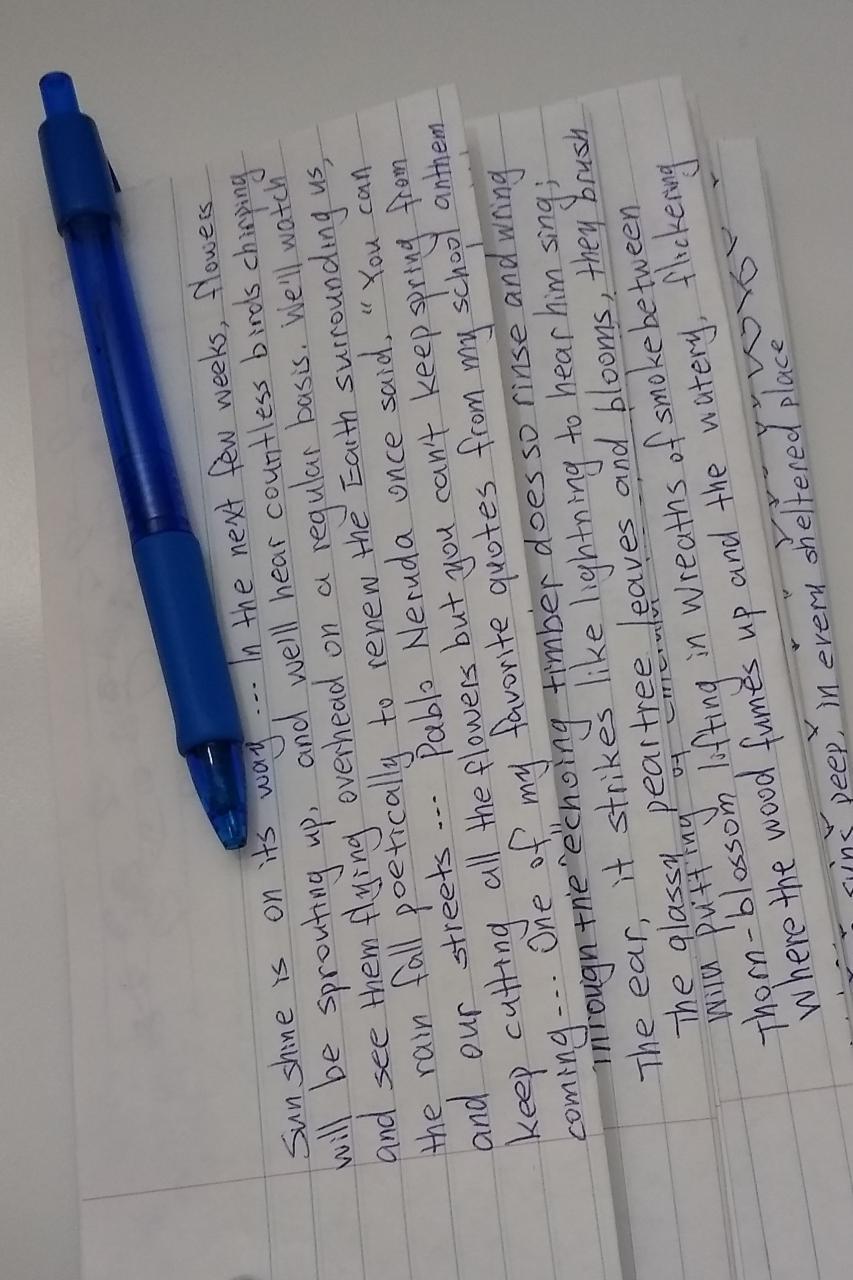 Sunshine is on its way .... In the next few weeks, flowers
will be sprouting up, and we'll hear countless birds chirping
and see them flying overhead on a regular basis. We'll watch
the rain fall poetically to renew the Earth surrounding us,
and our streets .... Pablo Neruda once said, "You can
keep cutting all the flowers but you can't keep spring from
coming .... One of my favorite quotes from my school anthem
Through the echoing timber does so rinse and wring
The ear, it strikes like lightning to hear him sing;
The glassy peartree leaves and blooms, they brush
Wild puffing of
Thorn-blossom lifting in wreaths of smoke between
Where the wood fumes up and the watery, flickering
peep, in every sheltered place